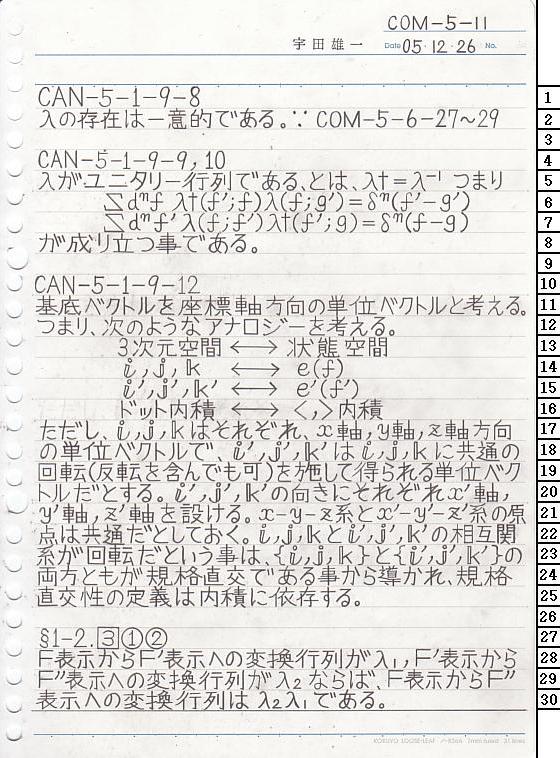 COM-5-11
宇田雄一 Date 05・12・26 No.
CAN-5-1-9-8
λの存在は一意的である。∵ COM-5-6-27~29
CAN-5-1-9-9,10
λがユニタリー行列である、とは、λ†=λ⁻¹ つまり
∑dⁿf λ†(f';f)λ(f;g')=δⁿ(f'-g')
∑dⁿf'λ(f;f')λ†(f';g)=δⁿ(f-g)
が成り立つ事である。
CAN-5-1-9-12
基底ベクトルを座標軸方向の単位ベクトルと考える。
つまり、次のようなアナロジーを考える。
3次元空間 ⟷ 状態空間
𝕚,𝕛,𝕜 ⟷ e(f)
𝕚',𝕛',𝕜' ⟷ e'(f')
ドット内積 ⟷ <,>内積
ただし、𝕚,𝕛,𝕜はそれぞれ、x軸,y軸,z軸方向
の単位ベクトルで、𝕚',𝕛',𝕜'は𝕚,𝕛,𝕜に共通の
回転(反転を含んでも可)を施して得られる単位ベク
トルだとする。𝕚',𝕛',𝕜'の向きにそれぞれx'軸,
y'軸,z'軸を設ける。x-y-z系とx'-y'-z'系の原
点は共通だとしておく。𝕚,𝕛,𝕜と𝕚',𝕛',𝕜'の相互関
係が回転だという事は、{𝕚,𝕛,𝕜}と{𝕚',𝕛',𝕜'}の
両方ともが規格直交である事から導かれ、規格
直交性の定義は内積に依存する。
§1-2.3①②
F表示からF'表示への変換行列がλ₁,F'表示から
F"表示への変換行列がλ₂ならば、F表示からF"
表示への変換行列はλ₂λ₁である。
1
2
3
4
5
6
7
8
9
10
11
12
13
14
15
16
17
18
19
20
21
22
23
24
25
26
27
28
29
30